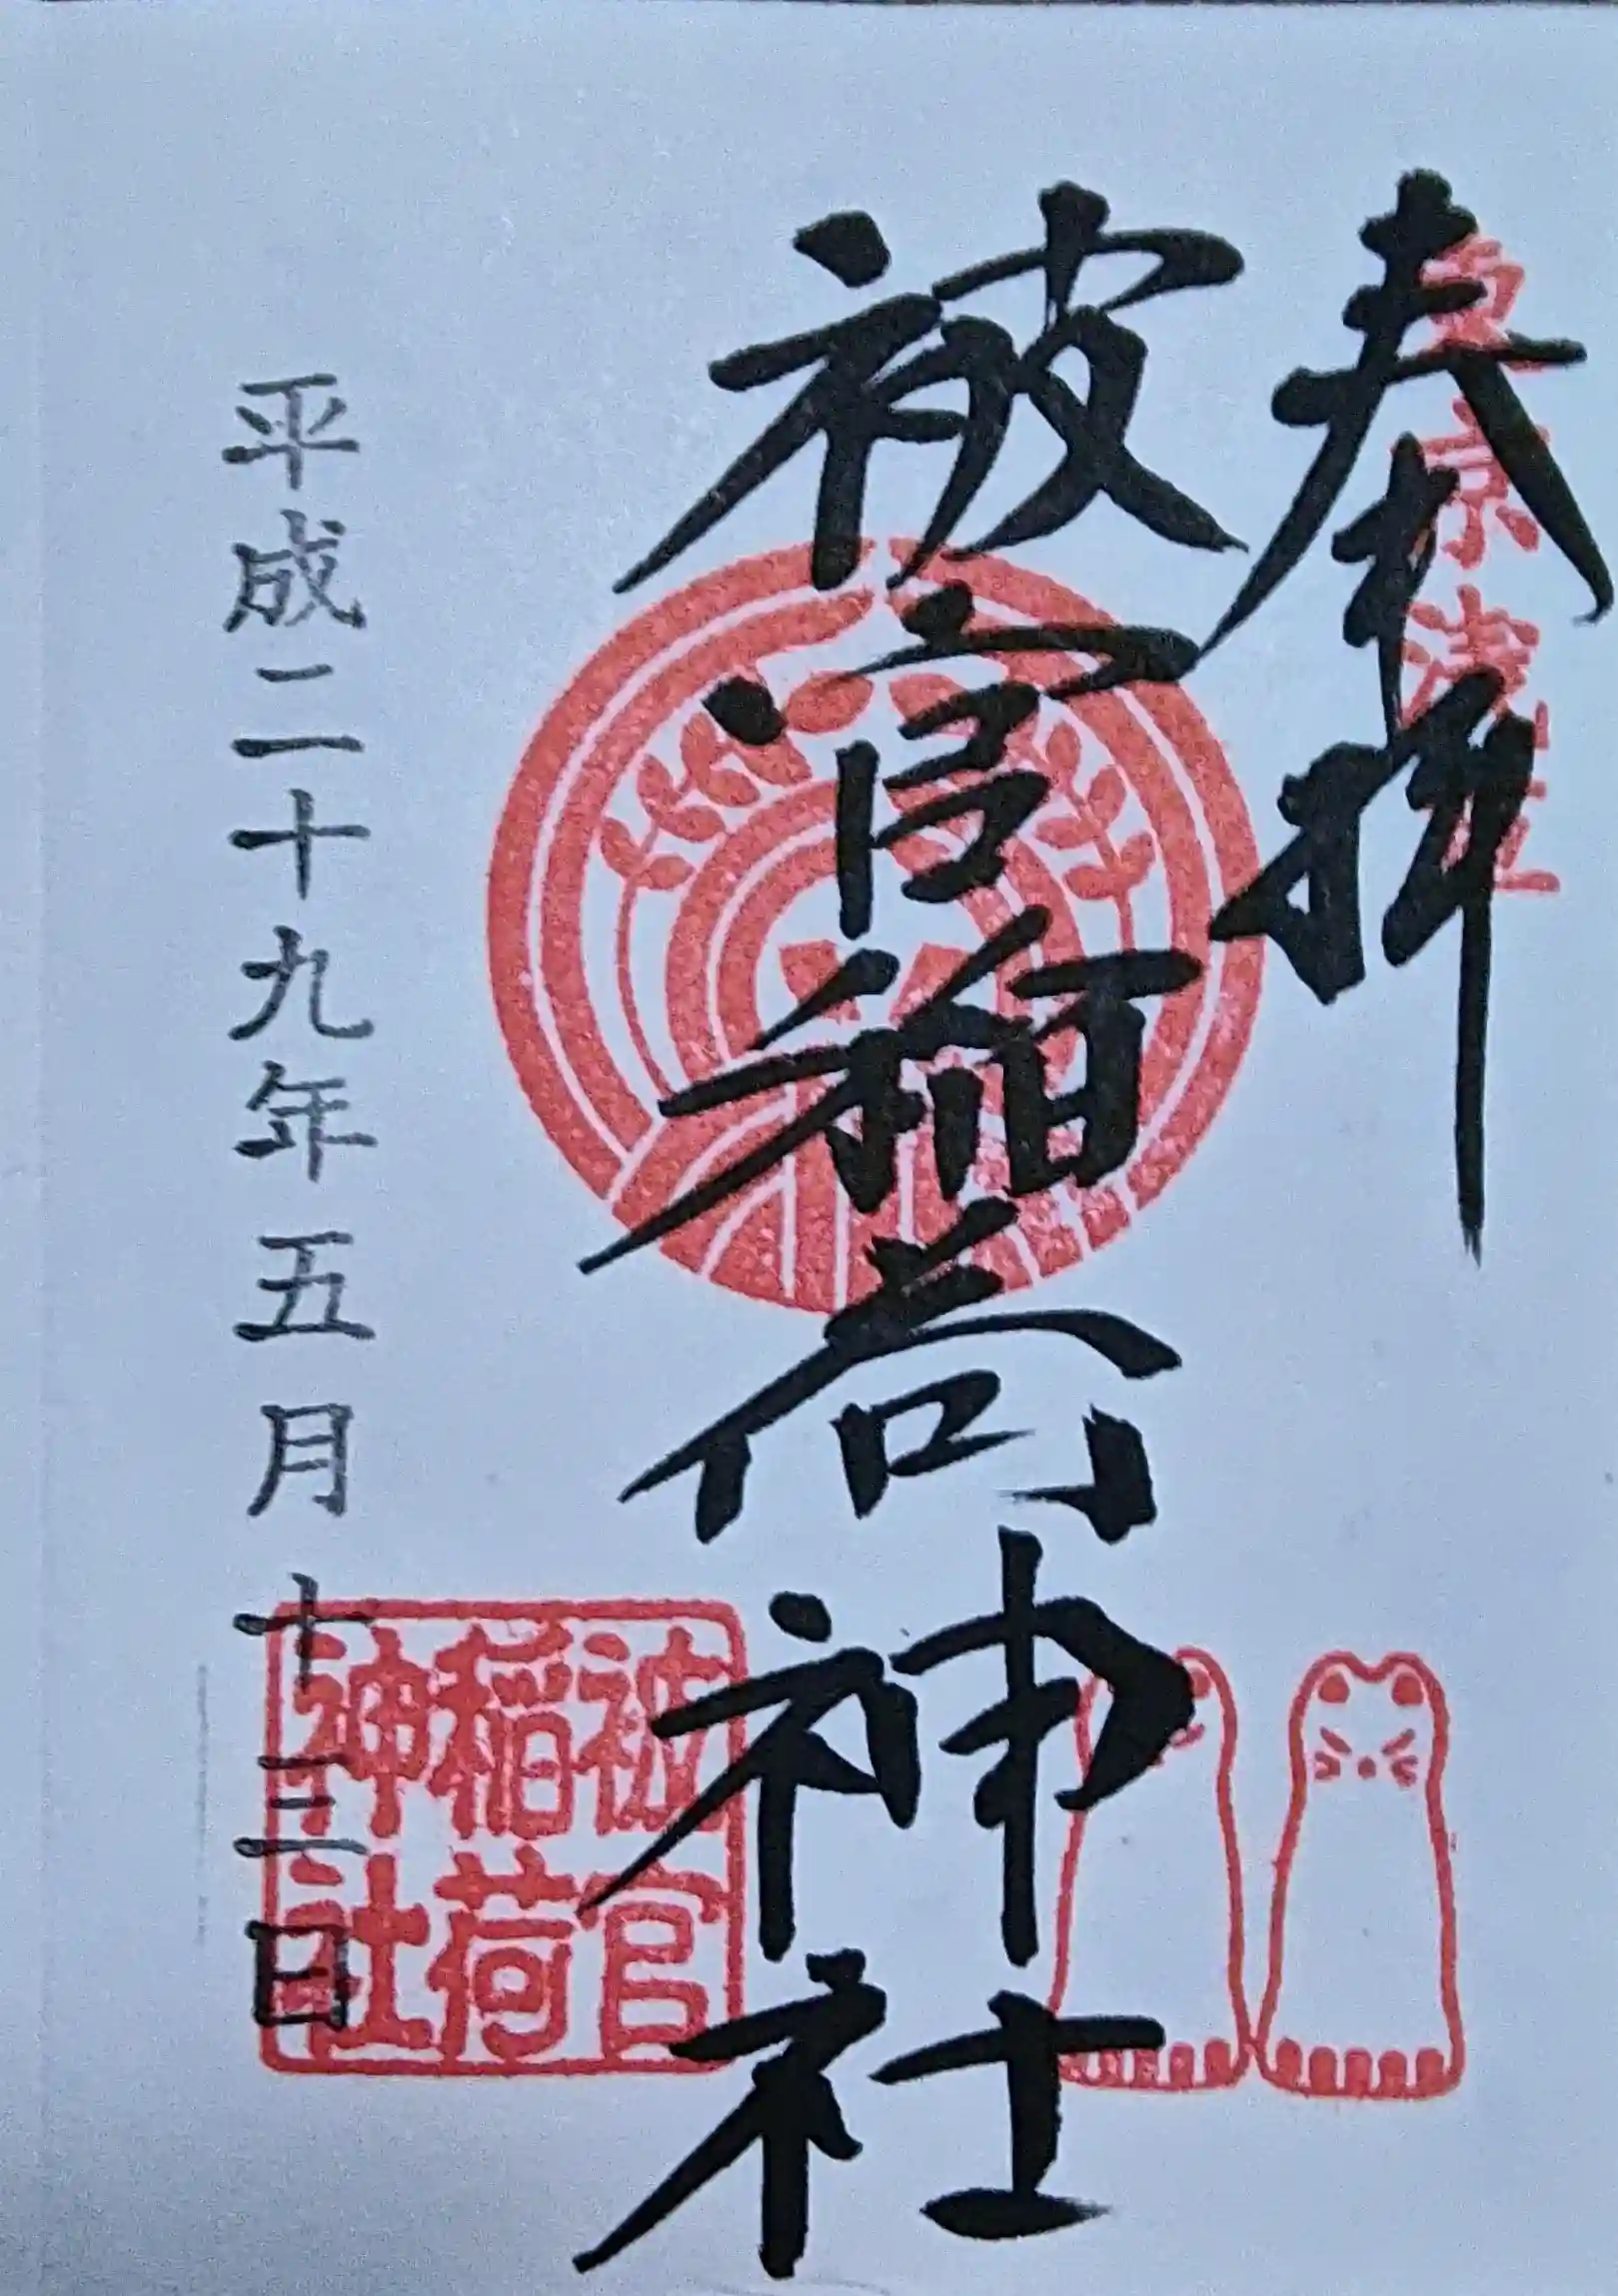 奉拝
東京浅草
被官稲荷神社
平成二十九年五月十三日
被官
稲荷
神社